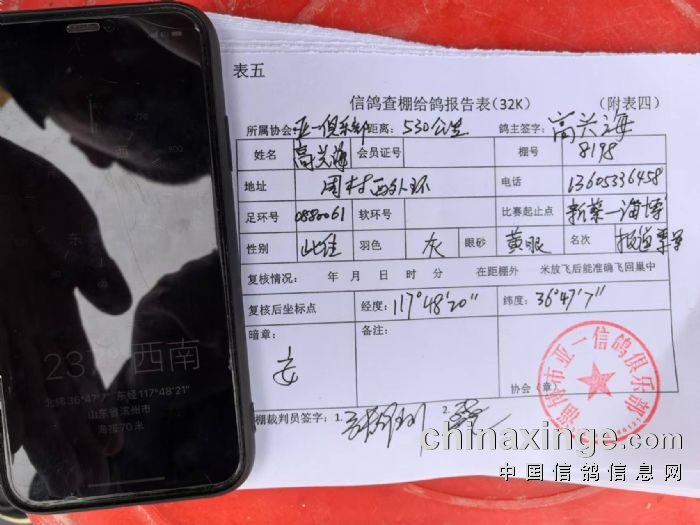 表五
信鸽查棚给鸽报告表(32K)
(附表四)
所属协会:亚一俱乐部 距离: 530公里 鸽主签字: 高兴海
姓名 高兴海 会员证号 棚号 8198
地址 周村西外环 电话 13605336458
足环号 0880061 软环号 比赛起止点 新荣一淄博
性别 羽色 灰 眼砂 黄眼 名次
复核情况: 年 月 日 时 分 在距棚外 米放飞后能准确飞回巢中
复核后坐标点 经度: 117°48'20" 纬度: 36°47'7"
暗章: 备注:
协会(章)
淄博市亚一信鸽俱乐部
棚裁判员签字: 1. 2.
237° 西南
北纬36°47'7" 东经117°48'21"
山东省滨州市
海拔70米
chinaxinge.com
中国信鸽信息网